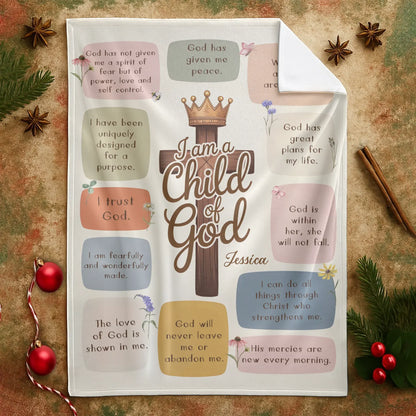 God has not given
me a spirit of
fear but of
power, love and
self control.
God has
given me
peace.
W
a
are
I have been
uniquely
designed
for a
purpose.
God has
great
plans for
my life.
I trust
God.
I am a
Child
of
God
Jessica
God is
within
her, she
will not fall.
I am fearfully
and wonderfully
made.
I can do all
things through
Christ who
strengthens me.
The love
of God is
shown in me.
God will
never leave
me or
abandon me.
His mercies are
new every morning.